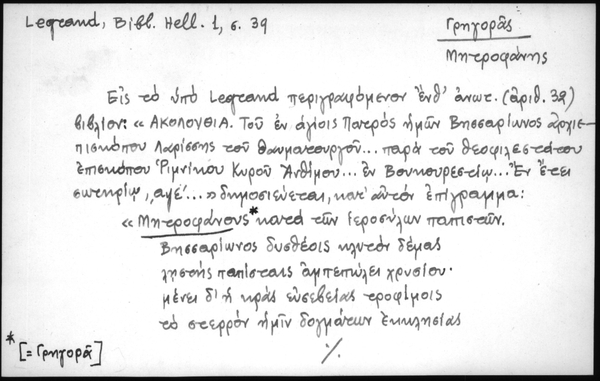 Legrand, Bibl. Hell. 1, σ. 39
Γρηγορᾶς
Μητροφάνης
Εἰς τὸ ὑπὸ Legrand περιγραφόμενον ἔνθ' ἀνωτ. (ἀριθ. 32)
βιβλίον: « ΑΚΟΛΟΥΘΙΑ. Τοῦ ἐν ἁγίοις Πατρός ἡμῶν Βησσαρίωνος ἀρχιε-
πισκόπου Λαρίσσης τοῦ θαυματουργοῦ... παρὰ τοῦ θεοφιλεστάτου
ἐπισκόπου Ῥιμνίκου Κυροῦ Ἀνθίμου... ἐν Βουκουρεστίῳ... Ἐν ἔτει
σωτηρίῳ, ,αψέ'...» δημοσιεύεται, κατ' αὐτὸν ἐπίγραμμα:
« Μητροφάνους* κατὰ τῶν ἱεροσύλων παπιστῶν.
Βησσαρίωνος δυσθέοις κλυτὸν δέμας
λῃστὴς παπίσταις ἀμπεπώλει χρυσίου·
μένει δ' ἡ κρὰς εὐσεβείας τροφίμοις
τὸ στερρὸν ἡμῖν δογμάτων ἐκκλησίας
*[= Γρηγορᾶ]
./.